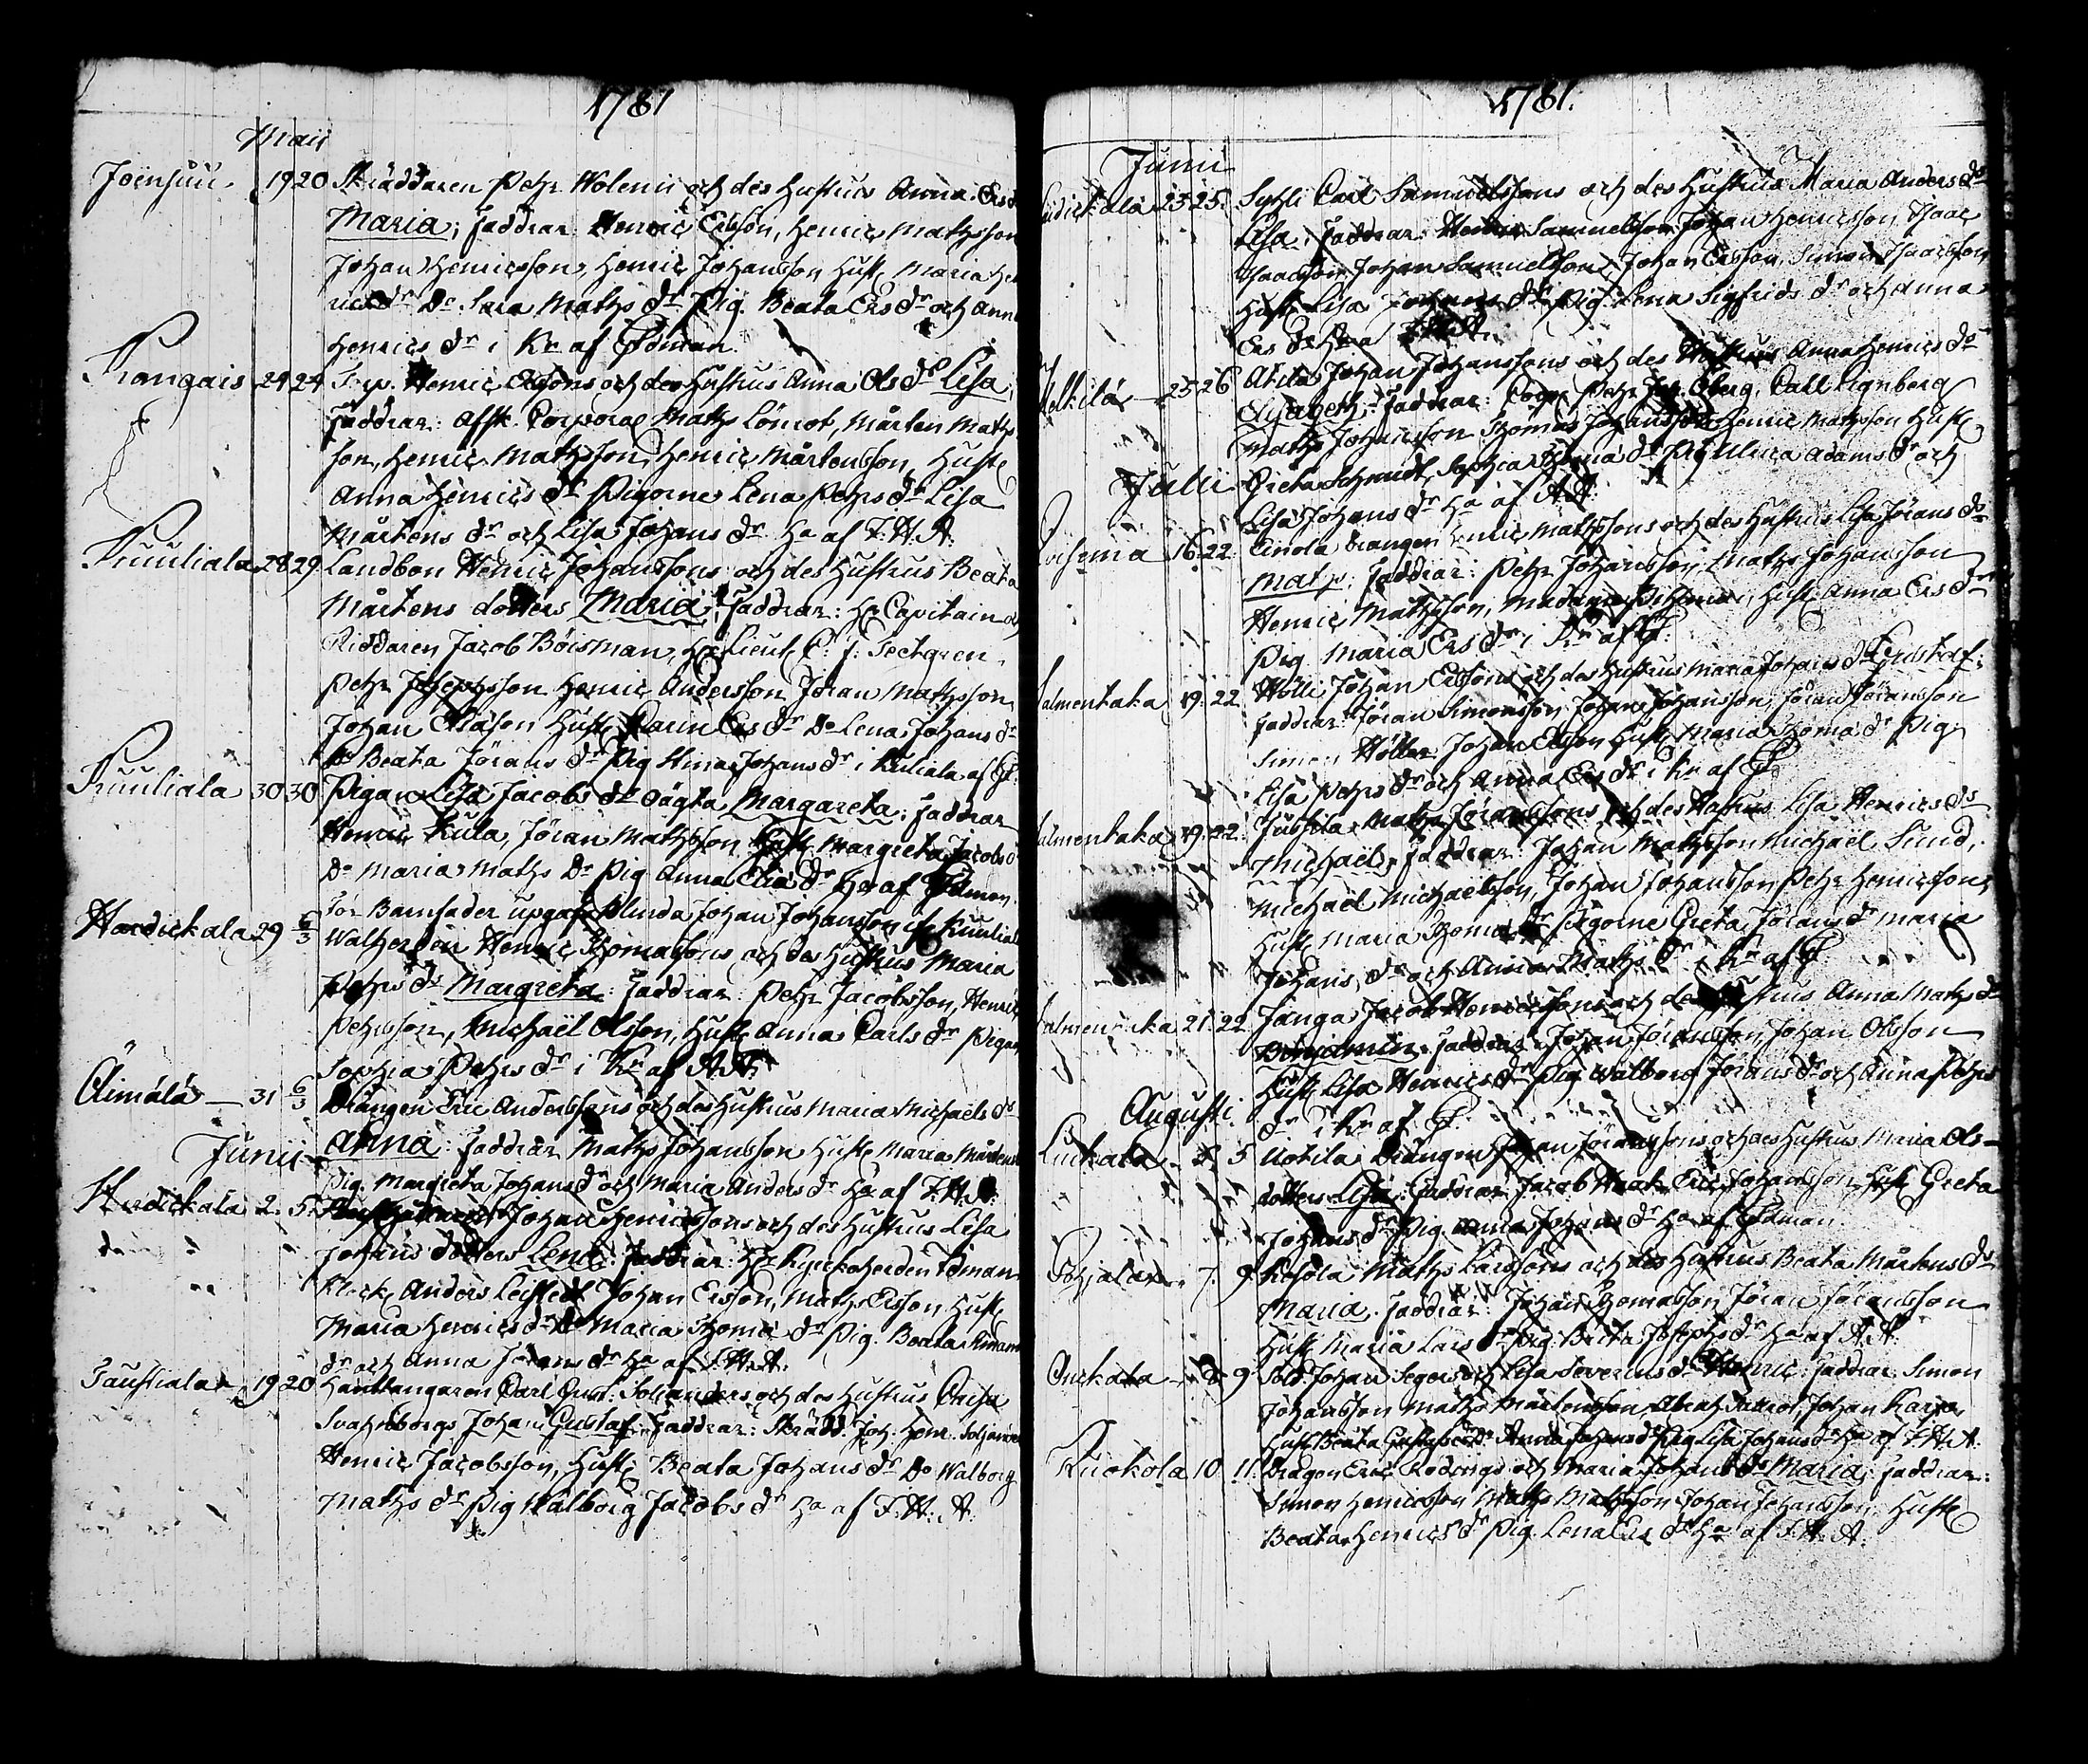 1781
Maii
Joensuu. 19 20 Skräddaren Petr Wolenii och des Hustrus Anna Ers d
Maria; faddrar Henric Ersson, Henric Mathsson
Johan Henricsson, Henric Johansson Hust. Maria Hen
rics dr Do Sara Maths dr Pig. Beata Ers dr och Anna
Henrics dr i Kn af Idman.
Kangais 24 24 Henric Ersons och des Hustrus Anna Ols dr Lisa,
faddrar: Afsk. Corporal Maths Lönrot, Mårten Maths
son, Henric Mathsson, Henric Mårtensson, Hust.
Anna Henrics dr Pigorne Lena Petrs dr Lisa
Mårtens dr och Lisa Johans dr Ha af F.H.A.
Kuuliala 28 29 Landbon Henric Johanssons och des Hustrus Beata
Mårtens dotters Maria; faddrar: Hr Capitain o
Riddaren Jacob Böisman, Hr Lieut. C. J. Tectgren,
Petr Josephsson Henric Andersson Jöran Mathsson
Johan Eliäson Hust. Karin Ers dr Do Lena Johans dr
Do Beata Jörans dr Pig Stina Johans dr i Kuliala af I
Kuuliala 30 30 Pigan Lisa Jacobs dr oägta Margareta; faddrar
Henric Kula, Jöran Mathsson Hust. Margreta Jacobs d
Do Maria Maths Do Pig Anna Eliä dr Ha af Idman.
För Barnfader upgafs Blinda Johan Johansson ifr Kuuliala
Haudickala 29 6/3 Walherden Henric Thomassons och des Hustrus Maria
Petrs dr Margreta: faddrar: Petr Jacobsson, Henric
Petrsson, Michaël Olsson, Hust. Anna Carls dr Pigan
Sophia Petrs dr i Kn af A.A.
Äimälä 31 6/3 Drängen Eric Anderssons och des Hustrus Maria Michaels dr
Anna: faddrar Maths Johansson Hust. Maria Mårtens
Junii Pig. Margreta Johans dr och Maria Anders dr Ha af F.H.A.
Hudickala 2. 5. Johan Henricssons och des Hustrus Lisa
Johans dotters Lena: faddrar: Hr Kyrckoherden Idman
Klock. Anders Leistedt Johan Ersson, Maths Ersson, Hust.
Maria Henrics dr Do Maria Thomæ dr Pig. Beata
dr och Anna Jörans dr Ha af F.H.A.
Taustiala 19 20 Handlangaren Carl Gust. Soljanders och des Hustrus Caisa
Svahnbergs Johan Gustaf. faddrar: Skrädd. Joh. Henr. Soljander
Henric Jacobsson, Hust. Beata Johans dr Do Walborg
Maths dr Pig Walborg Jacobs dr Ha af F.H.A.
1781.
Junii
udickala 23 25. Syhli Carl Samuelssons och des Hustrus Maria Anders dr
Lisa: faddrar: Henric Samuelsson Johan Henricsson Isaac
Isaacsson Johan Samuelsson, Johan Ersson, Simon Isaacsson
Hust. Lisa Johans dr Pig. Lena Sigfrids dr och Anna
Ers dr Ha F.H.A.
25 26 Atila Johan Johanssons och des Hustrus Anna Henrics dr
Elisabeth; faddrar: Petr Joh. Öberg, Call Lignberg
Maths Johansson Thomas Johansson Henric Mathsson Hust.
Julii Greta Schmidt, Sophia dr Pig Ulrica Adams dr och
Lisa Johans dr Ha af A.A.
16 22. Einola Drängen Henric Mathssons och des Hustrus Lisa Jörans dr
Maths: faddrar: Petr Johansson, Maths Johansson
Henric Mathsson, Madame, Hust. Anna Ers dr
Pig Maria Ers dr i Kn af I.
almentaka 19. 22. Hölli Johan Erssons och des Hustrus Maria Johans dr Gustaf:
faddrar: Jöran Simonsson Johan Johansson, Jöran Jöransson
Simon Hölla Johan Ersson Hust. Maria Thomæ dr Pig
Lisa Petrs dr och Anna Ers dr i Kn af I.
almentaka 19. 22. Jussila Maths Jöranssons och des Hustrus Lisa Henrics dr
Michaël, faddrar: Johan Mathsson Michaël Sund,
Michaël Michaëlsson, Johan Johansson Petr Henricsson,
Hust. Maria Thomæ dr Pigorne Greta Jörans dr Maria
Johans, dr och Anna Maths dr i Kn af I.
almen ka 21. 22 Janga Jacob Henricssons och des Hustrus Anna Maths dr
Benjamin. faddrar. Johan Jöransson, Johan Olsson
Hust. Lisa Henrics dr Pig. Walborg Jörans dr och Anna Petrs
Augusti. dr i Kn af I.
Luckala 5 Uotila Drängen Johan Jöranssons och des Hustrus Maria Ols
dotters Lisa: faddrar Jacob Eric Johansson Hust. Greta
Johans dr Pig. Anna Johans dr Ha af Idman.
Pohjalax. 7. 9. Kohola Maths Larssons och des Hustrus Beata Mårtens dr
Maria. faddrar: Johan Thomasson Jöran Jöransson
Hust. Maria Lars dr Pig. Brita Josephs dr Ha af A.A.
Onckala 9 Sold. Johan Segers och Lisa Severins dr Henric. faddrar. Simon
Johansson Maths Mårtensson Johan Karpo,
Hust. Beata Gustafs dr Anna Johans dr Pig Lisa Johans dr Ha af F.H.A.
Kuokola 10 11. Dragon Eric Rodings och Maria Johans dr Maria; faddrar:
Simon Henricsson Maths Mathsson Johan Johansson, Hust.
Beata Henrics dr Pig. Lena Ers dr Ha af F.H.A.